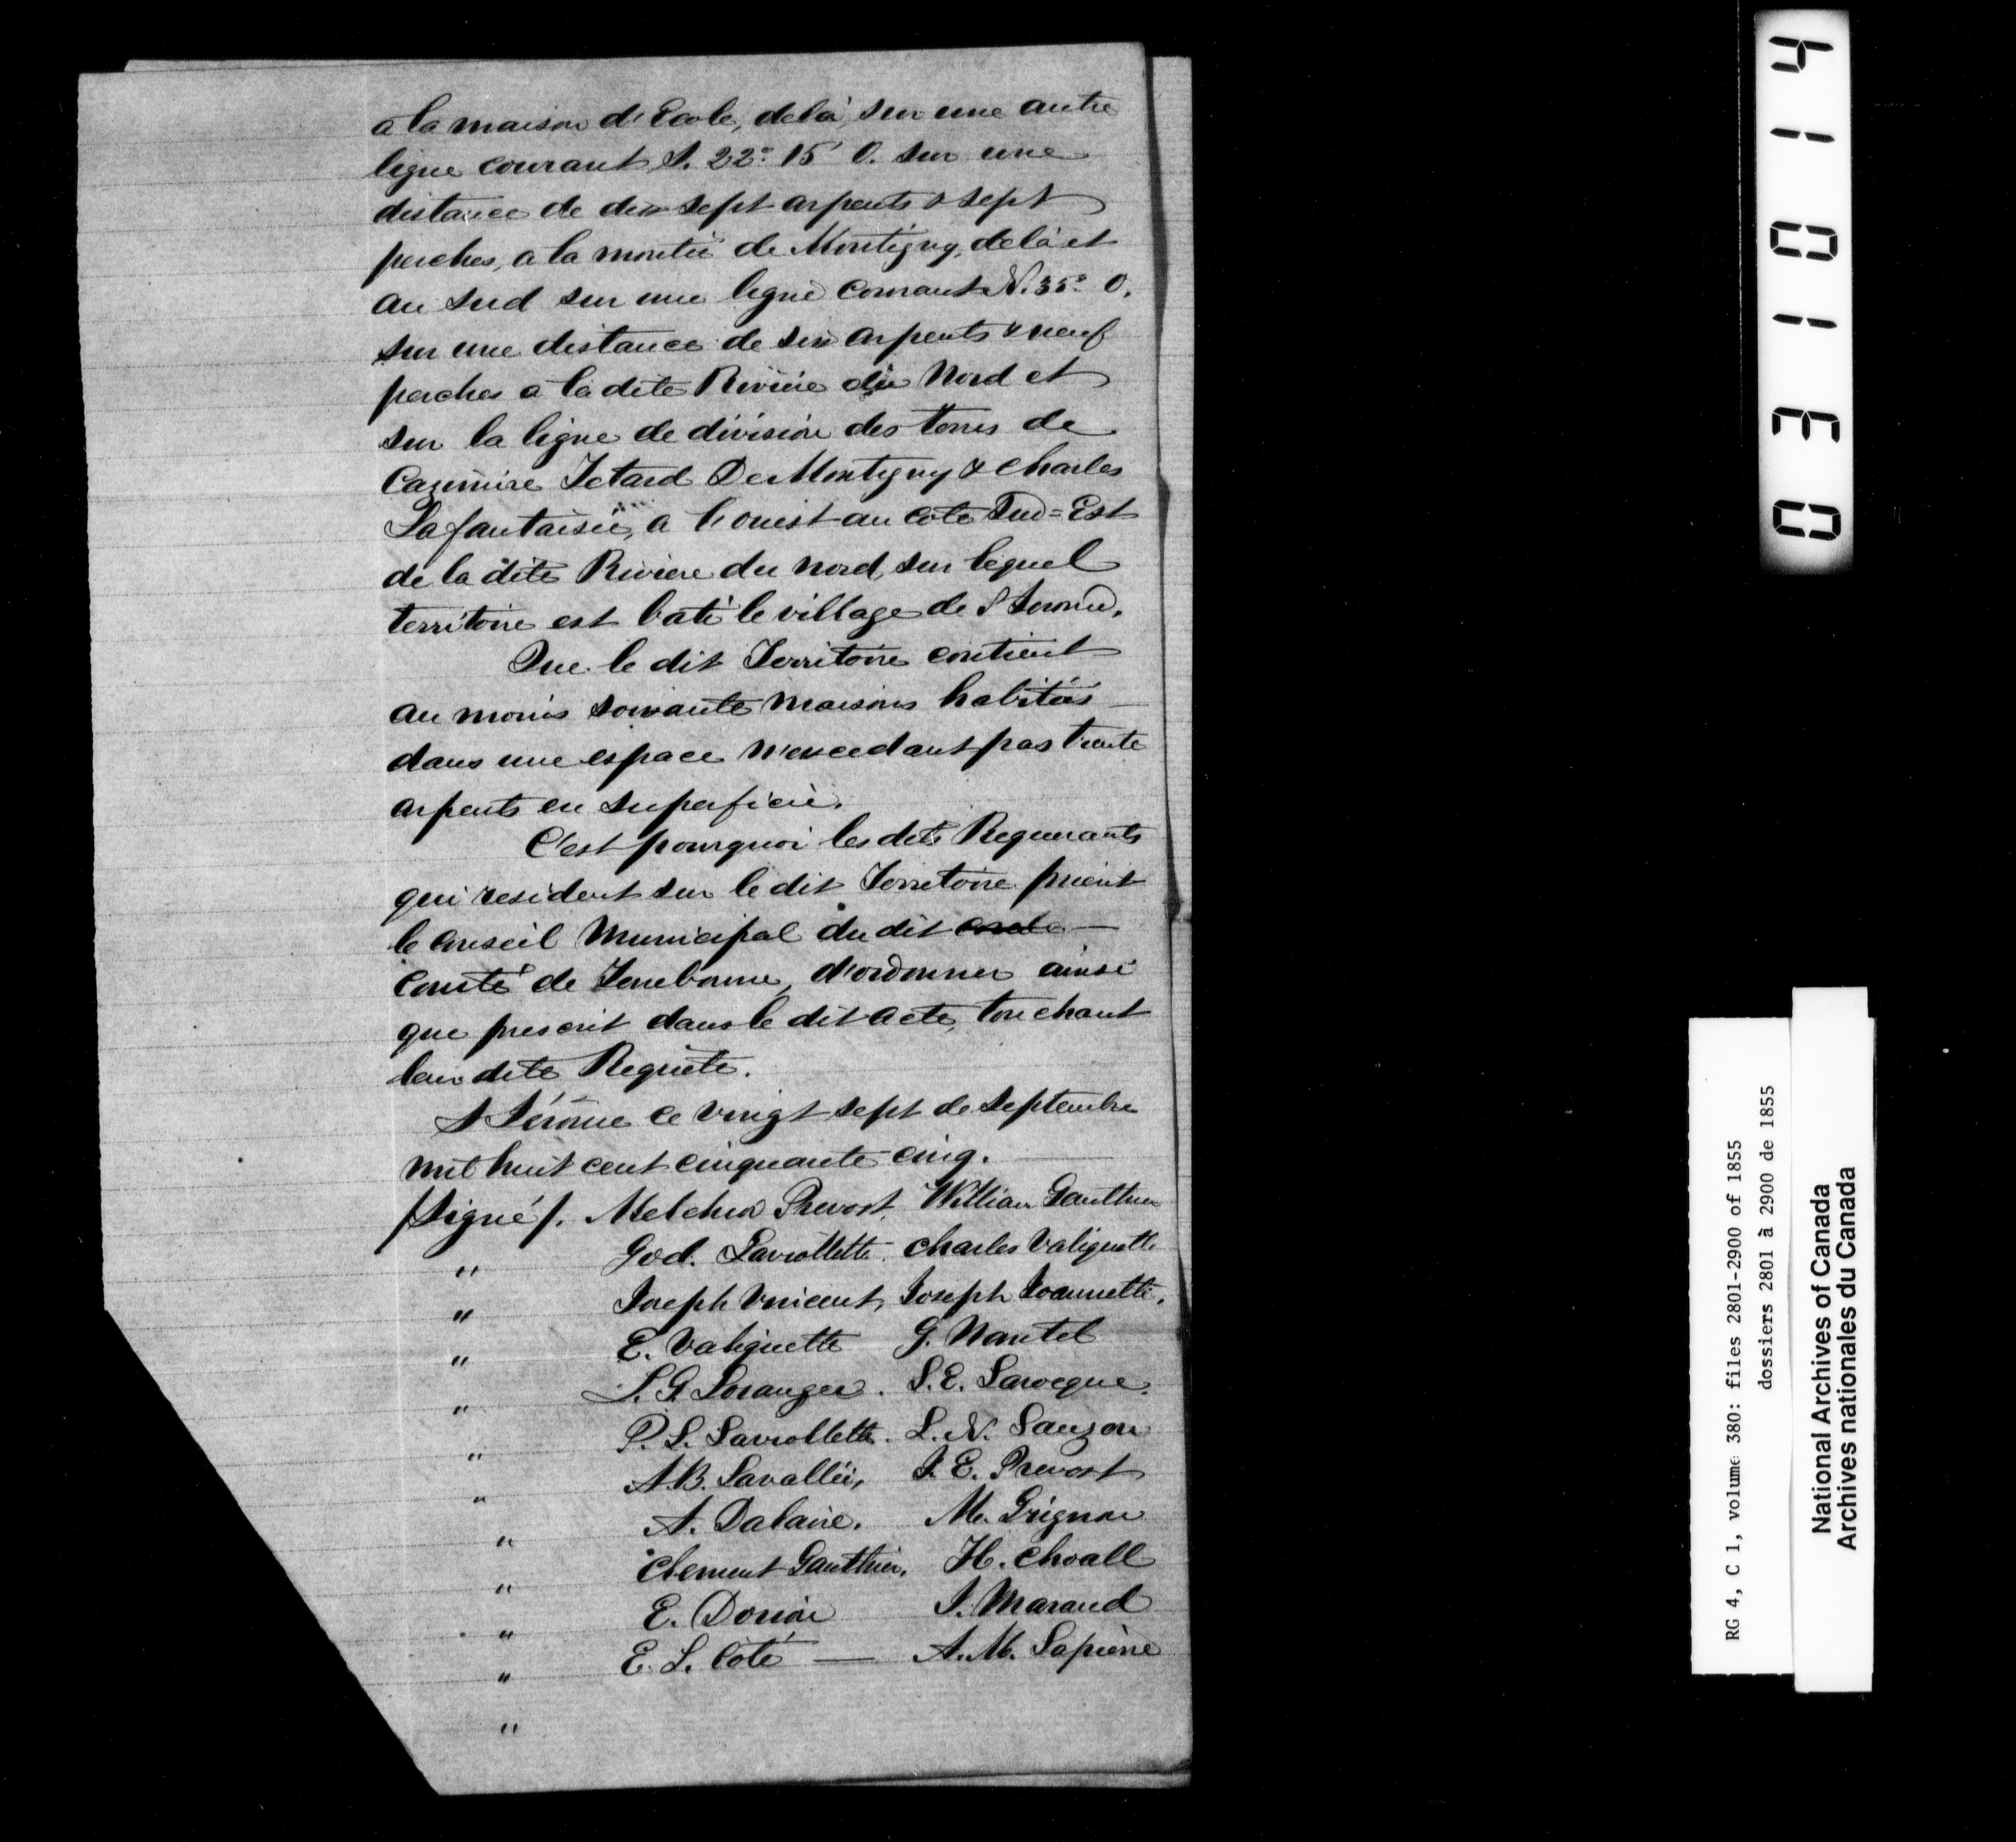 a la maison d'Ecole, delà, sur une autre
ligne courant S. 22° 15' O. sur une
distance de dix sept arpents & sept
perches, a la montée de Montigny, delà et
au sud sur une ligne courant N. 35° O.
sur une distance de six arpents & neuf
perches a la dite Rivière du Nord et
sur la ligne de division des terres de
Casimire Tetard De Montigny & Charles
Lafantaisie, a l'ouest au coté Sud=Est
de la dite Riviere du nord, sur lequel
territoire est bati le village de S Jerome.
Que le dit Territoire contient
au moins soixante maisons habitées
dans une espace n'excedant pas trente
arpents en superficie.
C'est pourquoi les dits Requerants
qui resident sur le dit Territoire prient
le Conseil Municipal du dit
Comté de Terrebonne, d'ordonner ainsi
que prescrit dans le dit acte, touchant
leur dite Requête.
S Jérôme ce vingt sept de septembre
mil huit cent cinquante cinq.
/Signé/. Melchior Prevost, William Gauthier
" God. Laviollette. Charles Valiquette
" Joseph Vincent, Joseph Joannette.
" E. Valiquette G. Nantel
" S. G. Loranger. S. E. Larocque.
" P. L. Laviollette. L. N. Lauzon
" A. B. Lavallée, J. E. Prevost
" A. Dalaire. M. Grignon
" Clement Gauthier. H. Choall
" E. Dorion J. Marand
" E. L. Coté — A. M. Lapierre
"
031014
RG 4, C 1, volume 380: files 2801-2900 of 1855
dossiers 2801 à 2900 de 1855
National Archives of Canada
Archives nationales du Canada